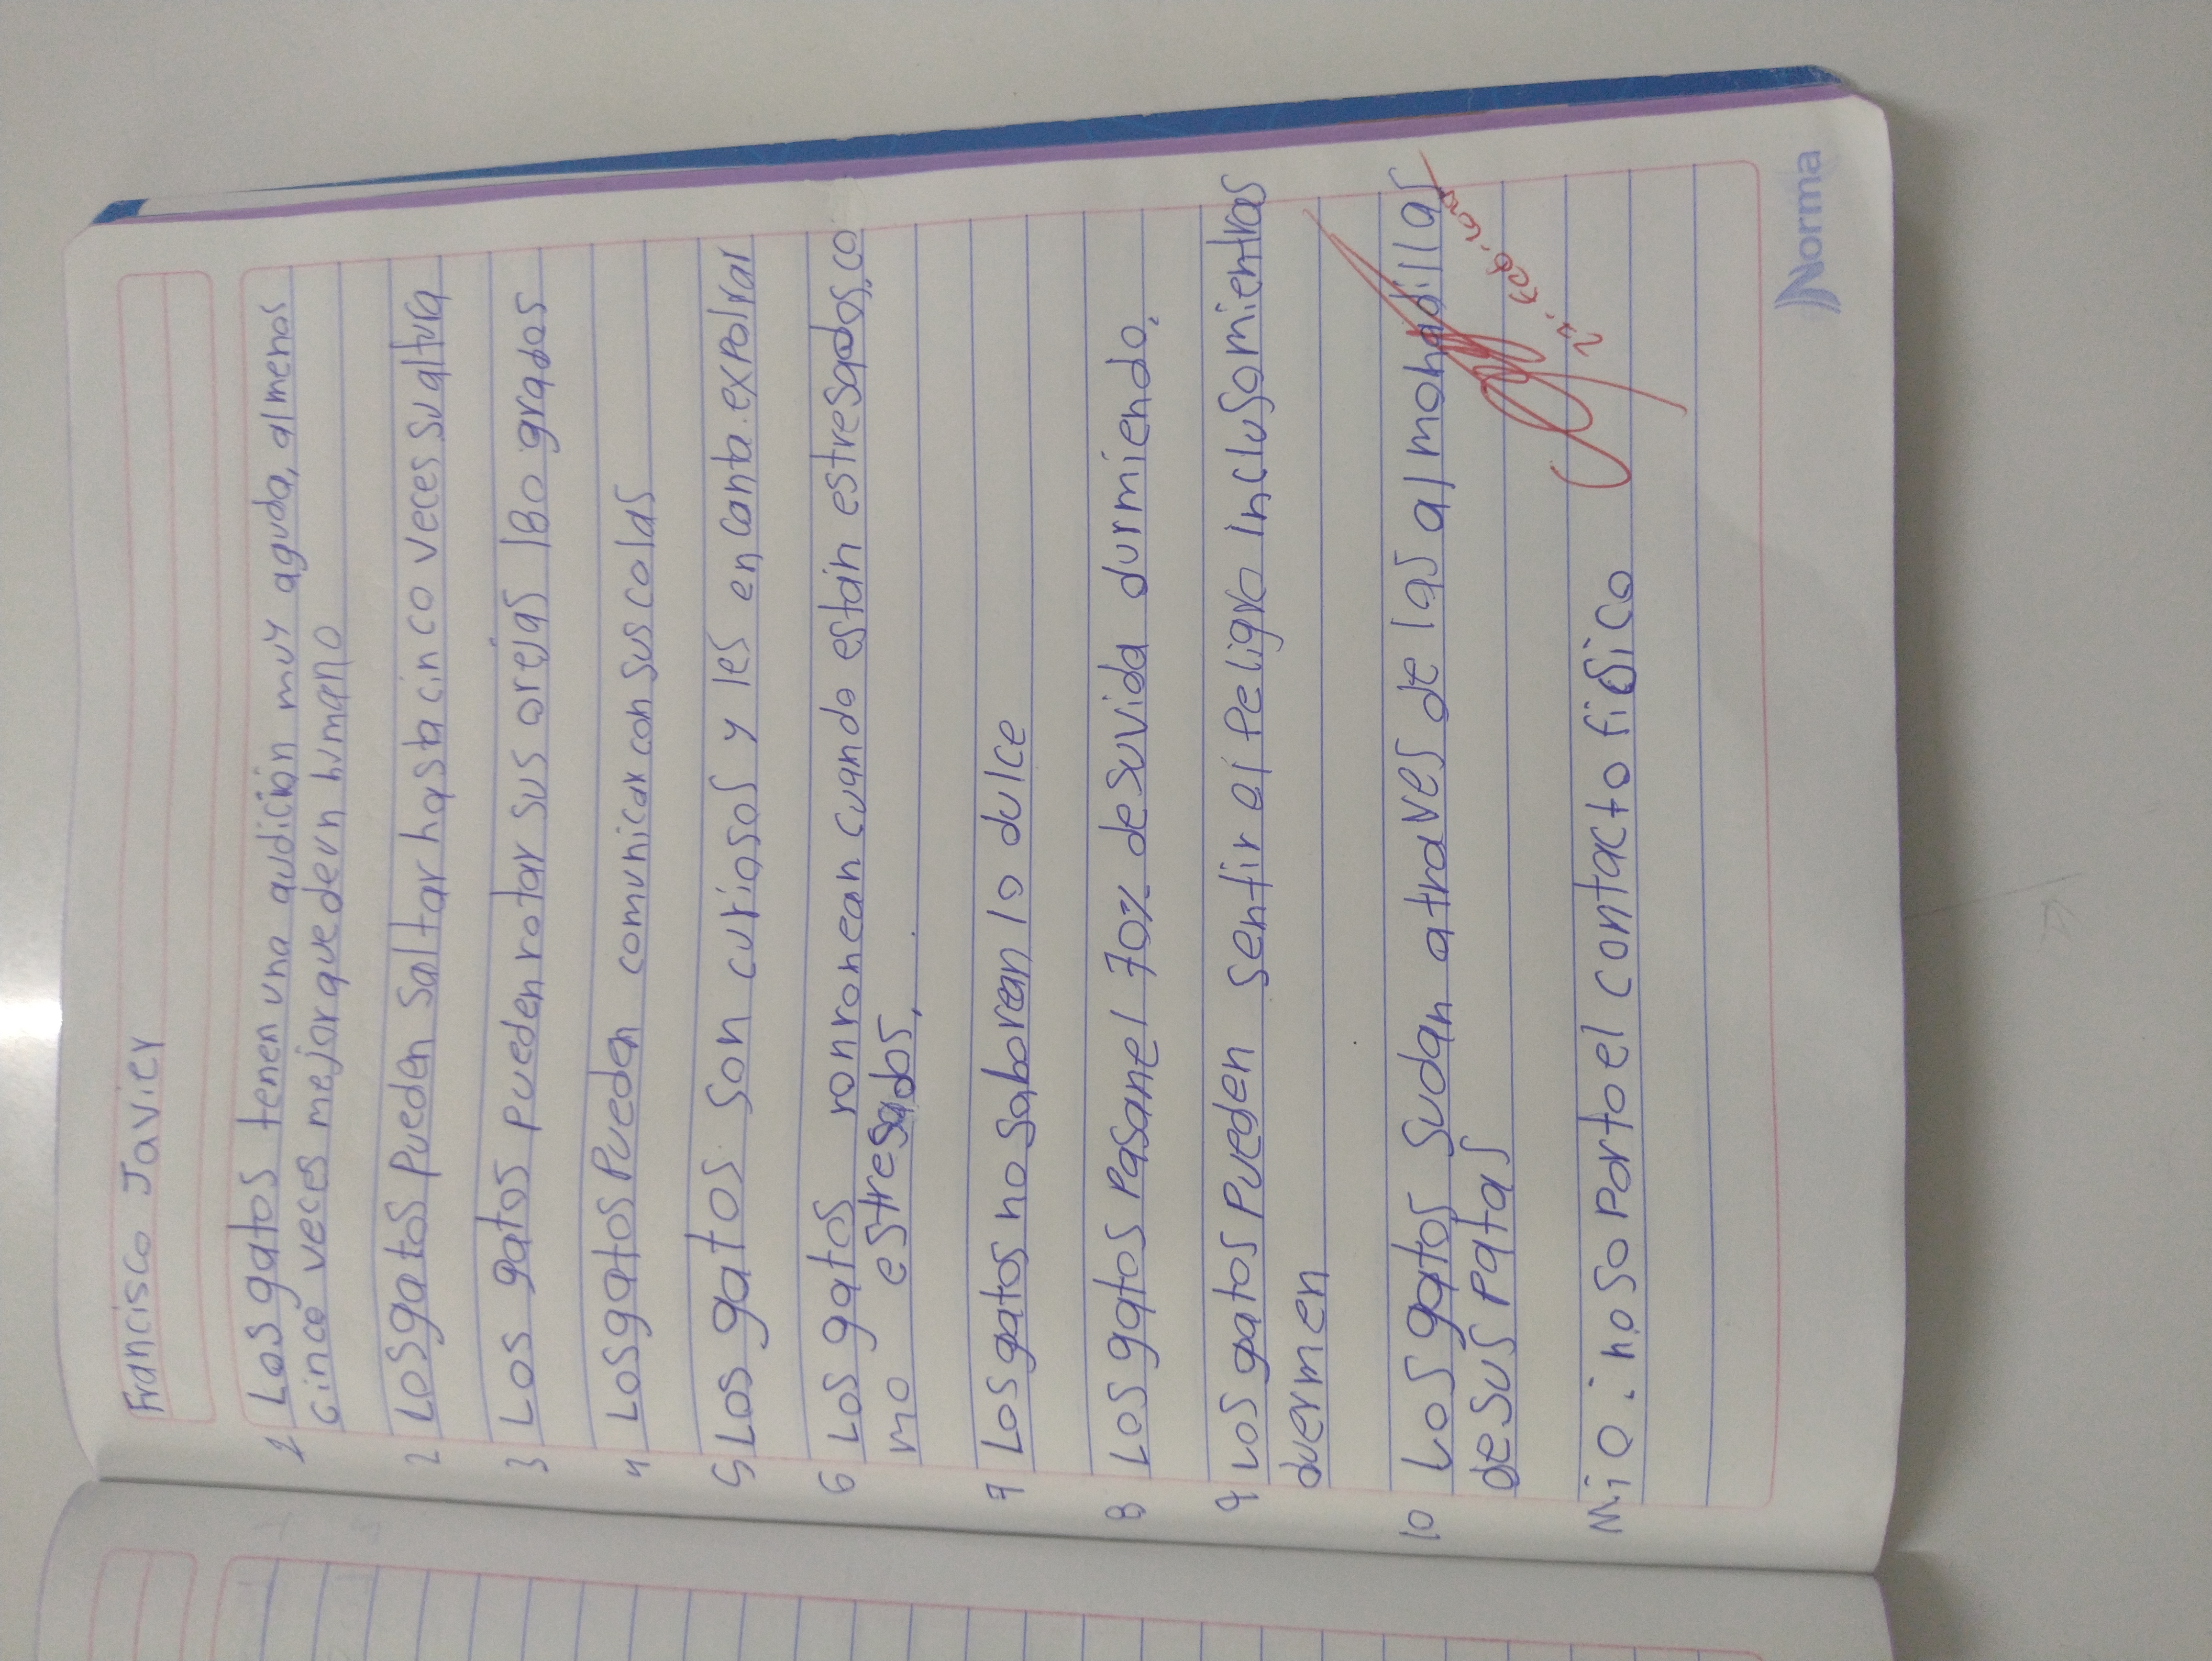 Francisco Javier
1 Los gatos tenen una audición muy aguda, almenos
cinco veces mejor que de un humano
2 Los gatos Pueden Saltar hasta cinco veces su altura
3 Los gatos pueden rotar sus orejas 180 grados
4 Los gatos Pueden comunicar con sus colas
5 Los gatos son curiosos y les encanta expolrar
6 Los gatos ronronean cuando están estresados, co
mo estresados,
7 Los gatos no saborean lo dulce
8 Los gatos Pasan el 70% de su vida durmiendo.
9 Los gatos Pueden sentir el Peligro incluso mientras
duermen
10 Los gatos sudan atraves de las almohadillas
de sus patas
Mio. no soporto el contacto fisico
Norma